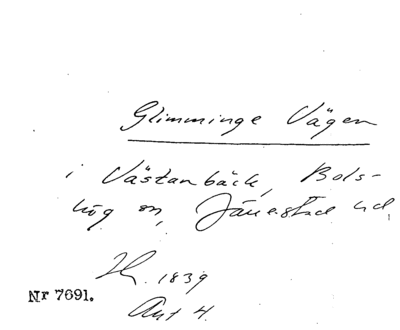 Glimminge Vägen
i Västanbäck, Bols-
hög sn, Järrestad hd,
1839
Nr 7691.
Ant 4